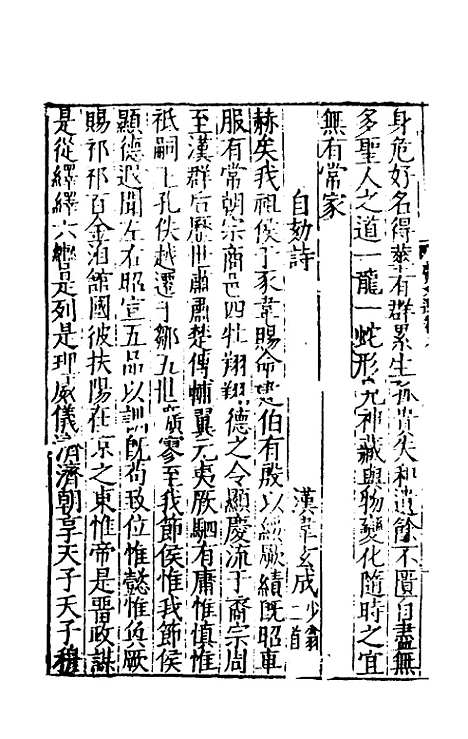 身危好名得華有群累生孤貴失和遺餘不匱自盡無
多聖人之道一龍一蛇形見神藏與物變化隨時之宜
無有常家
自劾詩
漢韋玄成少翁二首
赫矣我祖侯于豕韋賜命建伯有殷以綏厥績旣昭車
服有常朝宗商邑四牡翔翔德之令顯慶流于裔宗周
至漢群后歷世肅肅楚傅輔翼元夷厥駟有庸惟愼惟
祇嗣王孔佚越遷于鄒五世壙寥至我節侯惟我節侯
顯德遐聞左右昭宣五品以訓旣耇致位惟懿惟奐厥
賜祁祁百金洎館國彼扶陽在京之東惟帝是畱政謀
是從繹繹六轡是列是理威儀濟濟朝享天子天子穆